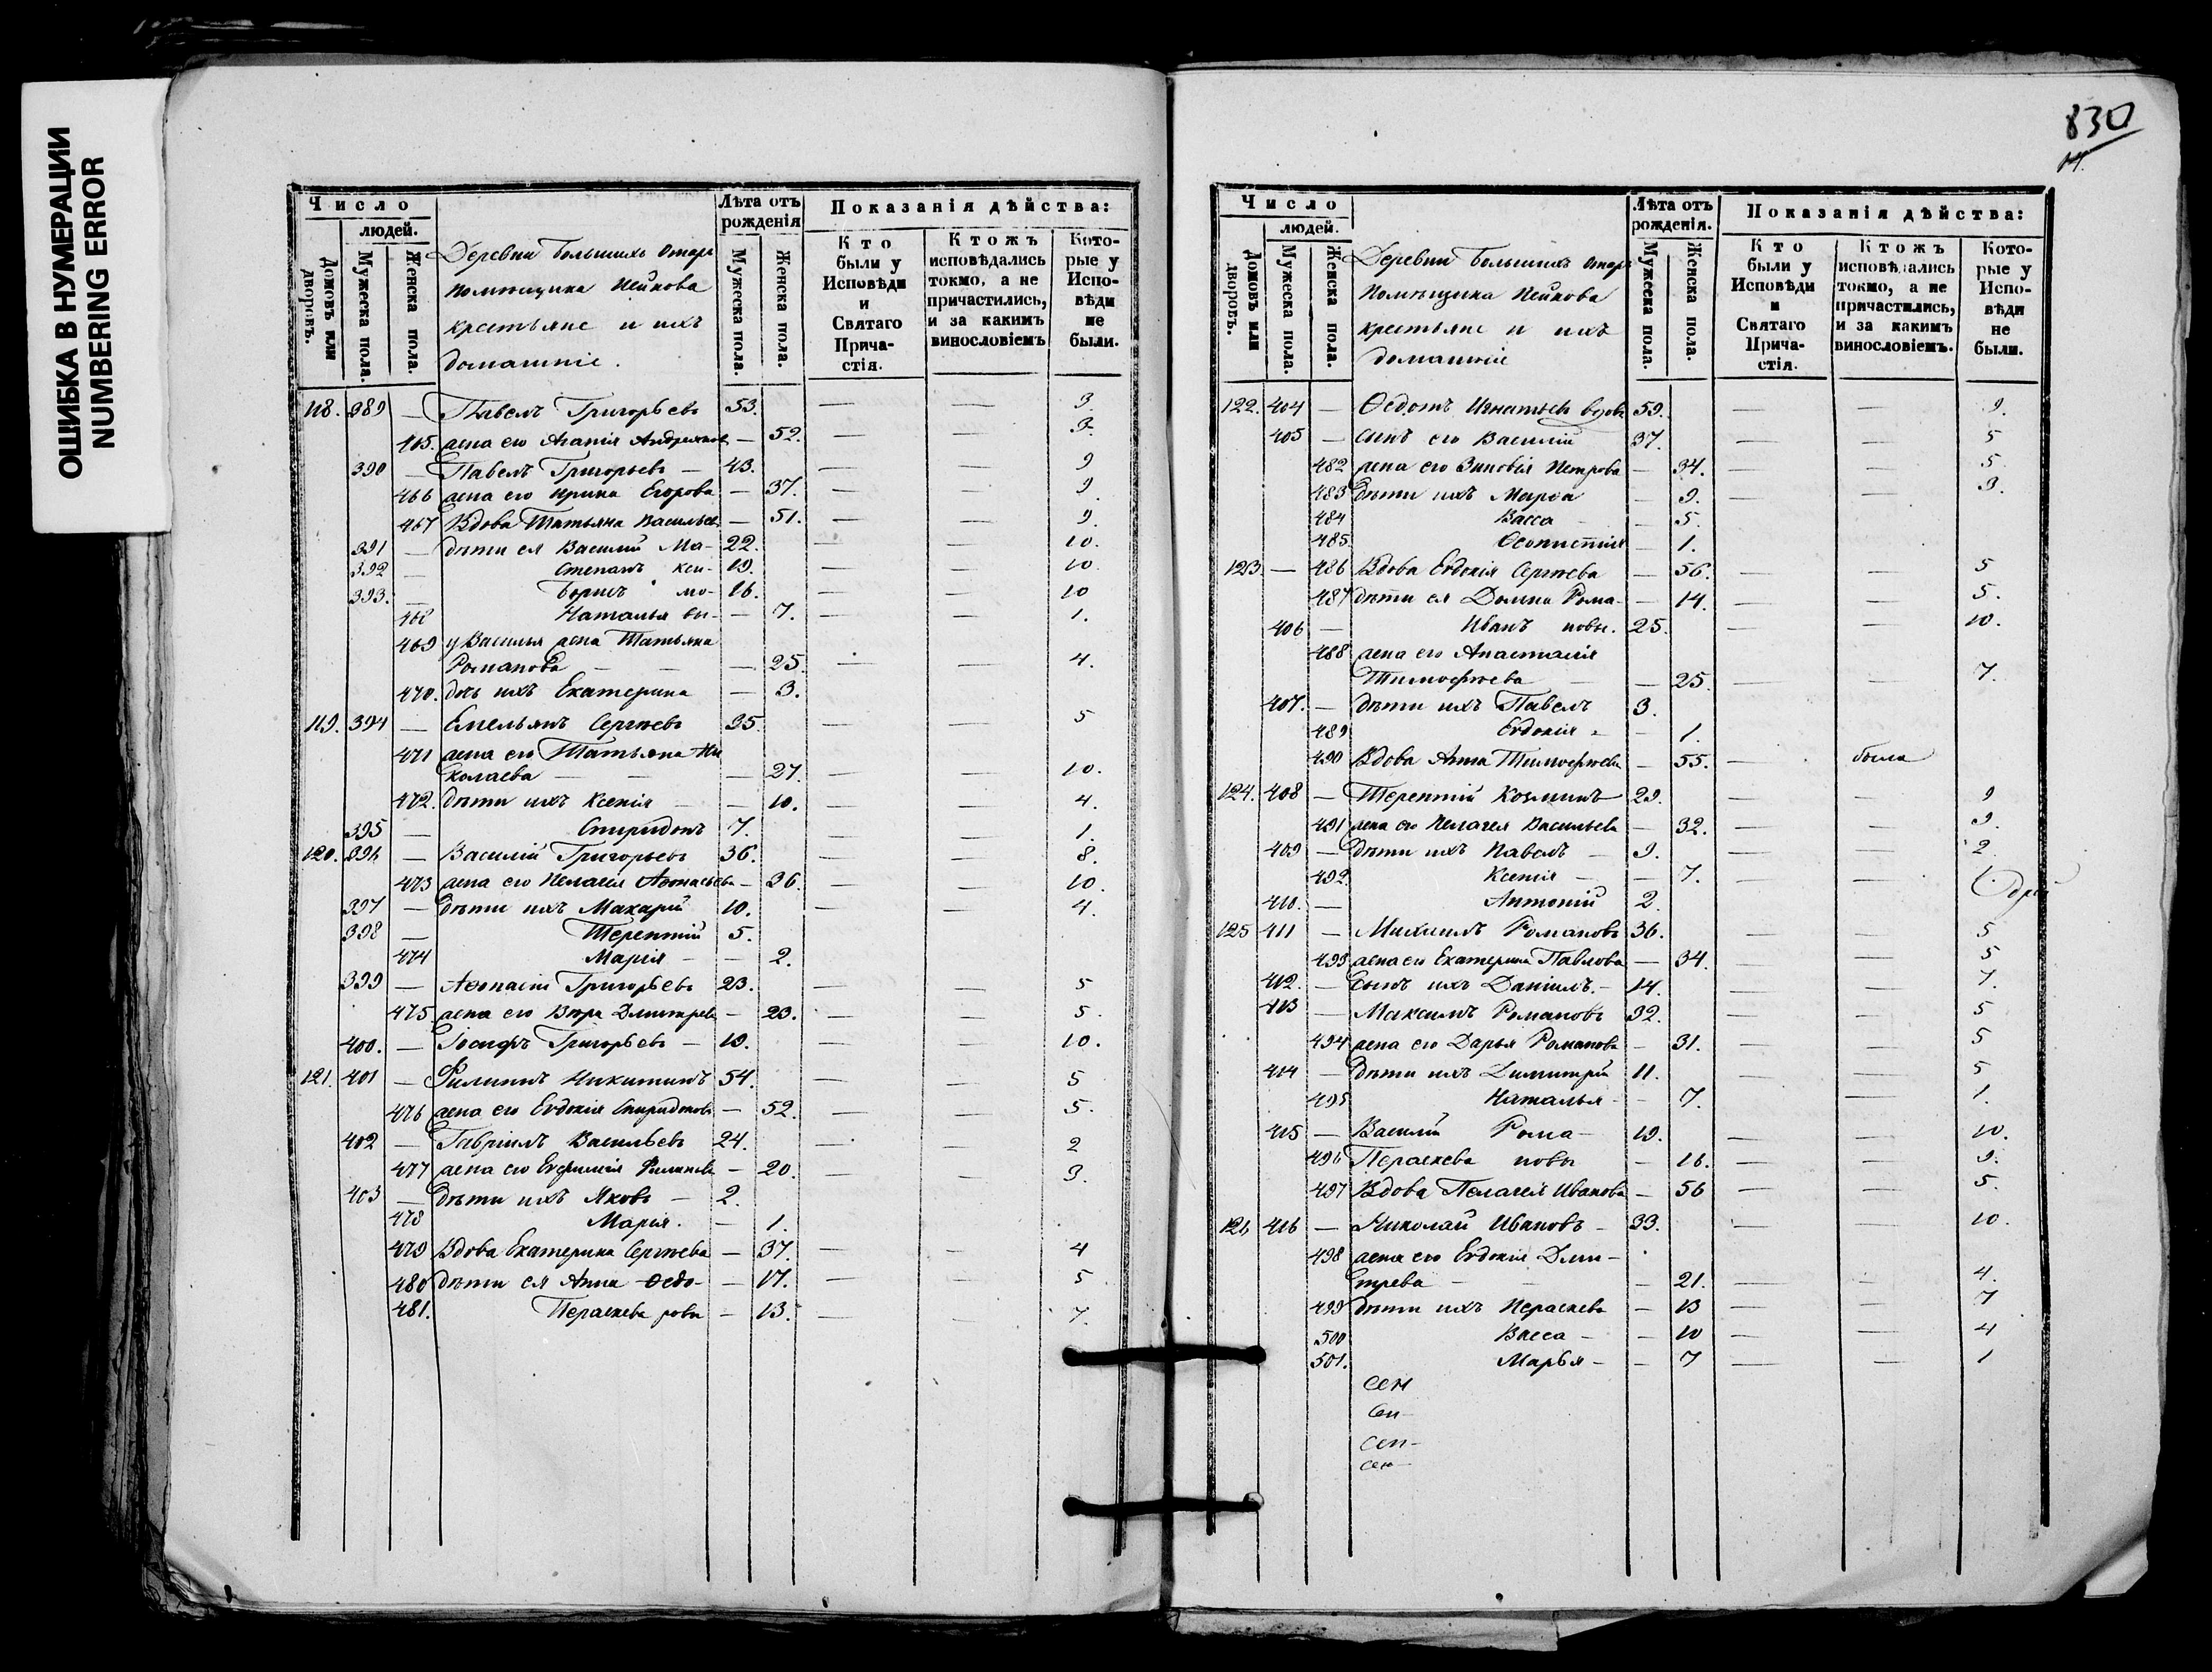 ОШИБКА В НУМЕРАЦИИ
NUMBERING ERROR
Число
людей.
Домовъ или дворовъ.
Мужеска пола.
Женска пола.
Деревни Большихъ
помѣщика Пейкова
крестьяне и ихъ
домашніе.
Лѣта отъ рожденія
Мужеска пола.
Женска пола.
Показанія дѣйства:
Кто были у Исповѣди и Святаго Прича-стія.
Ктожъ исповѣдались токмо, а не причастились, и за какимъ винословіемъ
Кото-рые у Испо-вѣди не были.
118. 389 — Павелъ Григорьевъ 53. — — 9.
465. жена его Агапія — 52. — — 9.
390 — Павелъ Григорьевъ — 43. — — 9
466 жена его Ирина Егорова — 37. — — 9.
467 Вдова Татьяна Васильев — 51. — — 9.
391 — дѣти ея Василій Ма- 22. — — 10.
392 — Степанъ кси- 19. — — 10.
393. — Борисъ мо- 16. — — 10
468 Наталья вы- — 7. — — 1.
469 у Василья жена Татьяна
Романова — — — 25. — — 4.
470. дочь ихъ Екатерина — 3.
119. 394 — Емельянъ Сергѣевъ 35. — — 5
471 жена его Татьяна Ни
колаева — — — 27. — — 10.
472. дѣти ихъ Ксенія — — 10. — — 4.
395 — Спиридонъ 7. — — 1.
120. 396 — Василій Григорьевъ 36. — — 8.
473 жена его Пелагея Аѳонасьева — 36. — — 10.
397 — дѣти ихъ Макарій 10. — — 4.
398 — Терентій 5.
474 Марія — — 2.
399 — Аѳонасій Григорьевъ 23. — — 5
475 жена его Вѣра Дмитрева — 23. — — 5.
400. — Іосифъ Григорьевъ — 19. — — 10.
121. 401 — Филиппъ Никитинъ 54. — — 5
476 жена его Евдокія Спиридонов — 52. — — 5.
402 — Гавріилъ Васильевъ 24. — — 2
477 жена его Евфимія — 20. — — 9.
403 — дѣти ихъ Яковъ — 2.
478 Марія. — 1.
479 Вдова Екатерина Сергѣева — 37. — — 4
480 дѣти ея Анна Ѳедо- — 17. — — 5
481. Параскева ровы — 13. — — 7.
830
Число
людей.
Домовъ или дворовъ.
Мужеска пола.
Женска пола.
Деревни Большихъ
Помѣщика Пейкова
крестьяне и ихъ
домашніе
Лѣта отъ рожденія.
Мужеска пола.
Женска пола.
Показанія дѣйства:
Кто были у Исповѣди и Святаго Прича-стія.
Ктожъ исповѣдались токмо, а не причастились, и за какимъ винословіемъ.
Кото-рые у Испо-вѣди не были.
122. 404 — Ѳедотъ Игнатьевъ вдовъ 59. — — 9.
405 — сынъ его Василій 37. — — 5
482 жена его Зиновія Петрова — 34. — — 5.
483 дѣти ихъ Марѳа — 9. — — 9.
484 Васса — — 5.
485. — 1.
123. — 486 Вдова Евдокія Сергѣева — 56. — — 5
487 дѣти ея Домна Рома- — 14. — — 5.
406 — Иванъ новы. 25. — — 10.
488 жена его Анастасія
Тимофѣева — — 25. — — 7.
407. — дѣти ихъ Павелъ 3.
489 Евдокія — — 1.
490 Вдова Анна Тимофѣева — 55. — была
124. 408 — Терентій Козминъ 29. — — 9
491 жена его Пелагея Васильева — 32. — — 9.
409 — дѣти ихъ Павелъ — 9. — — 2
492. Ксенія — — 7. — — 1.
410. — Антоній 2.
125 411 — Михаилъ Романовъ 36. — — 5
493 жена его Екатерина Павлова — 34. — — 5
412. — сынъ ихъ Даніилъ. — 14. — — 7.
413 — Максимъ Романовъ 32. — — 5
494 жена его Дарья Романова — 31. — — 5
414 — дѣти ихъ Димитрій 11. — — 5
495 Наталья — — 7. — 1.
415 — Василій Рома- 19. — — 10.
496 Параскева новы — 16. — — 9.
497 Вдова Пелагея Иванова — 56 — — 5.
126 416 — Николай Ивановъ — 33. — — 10.
498 жена его Евдокія Дми-
трева — — — 21. — — 4.
499 дѣти ихъ Параскева — 13 — — 7
500 Васса — — 10 — — 4
501. Марья — — 7 — — 1
сен
сен-
сен-